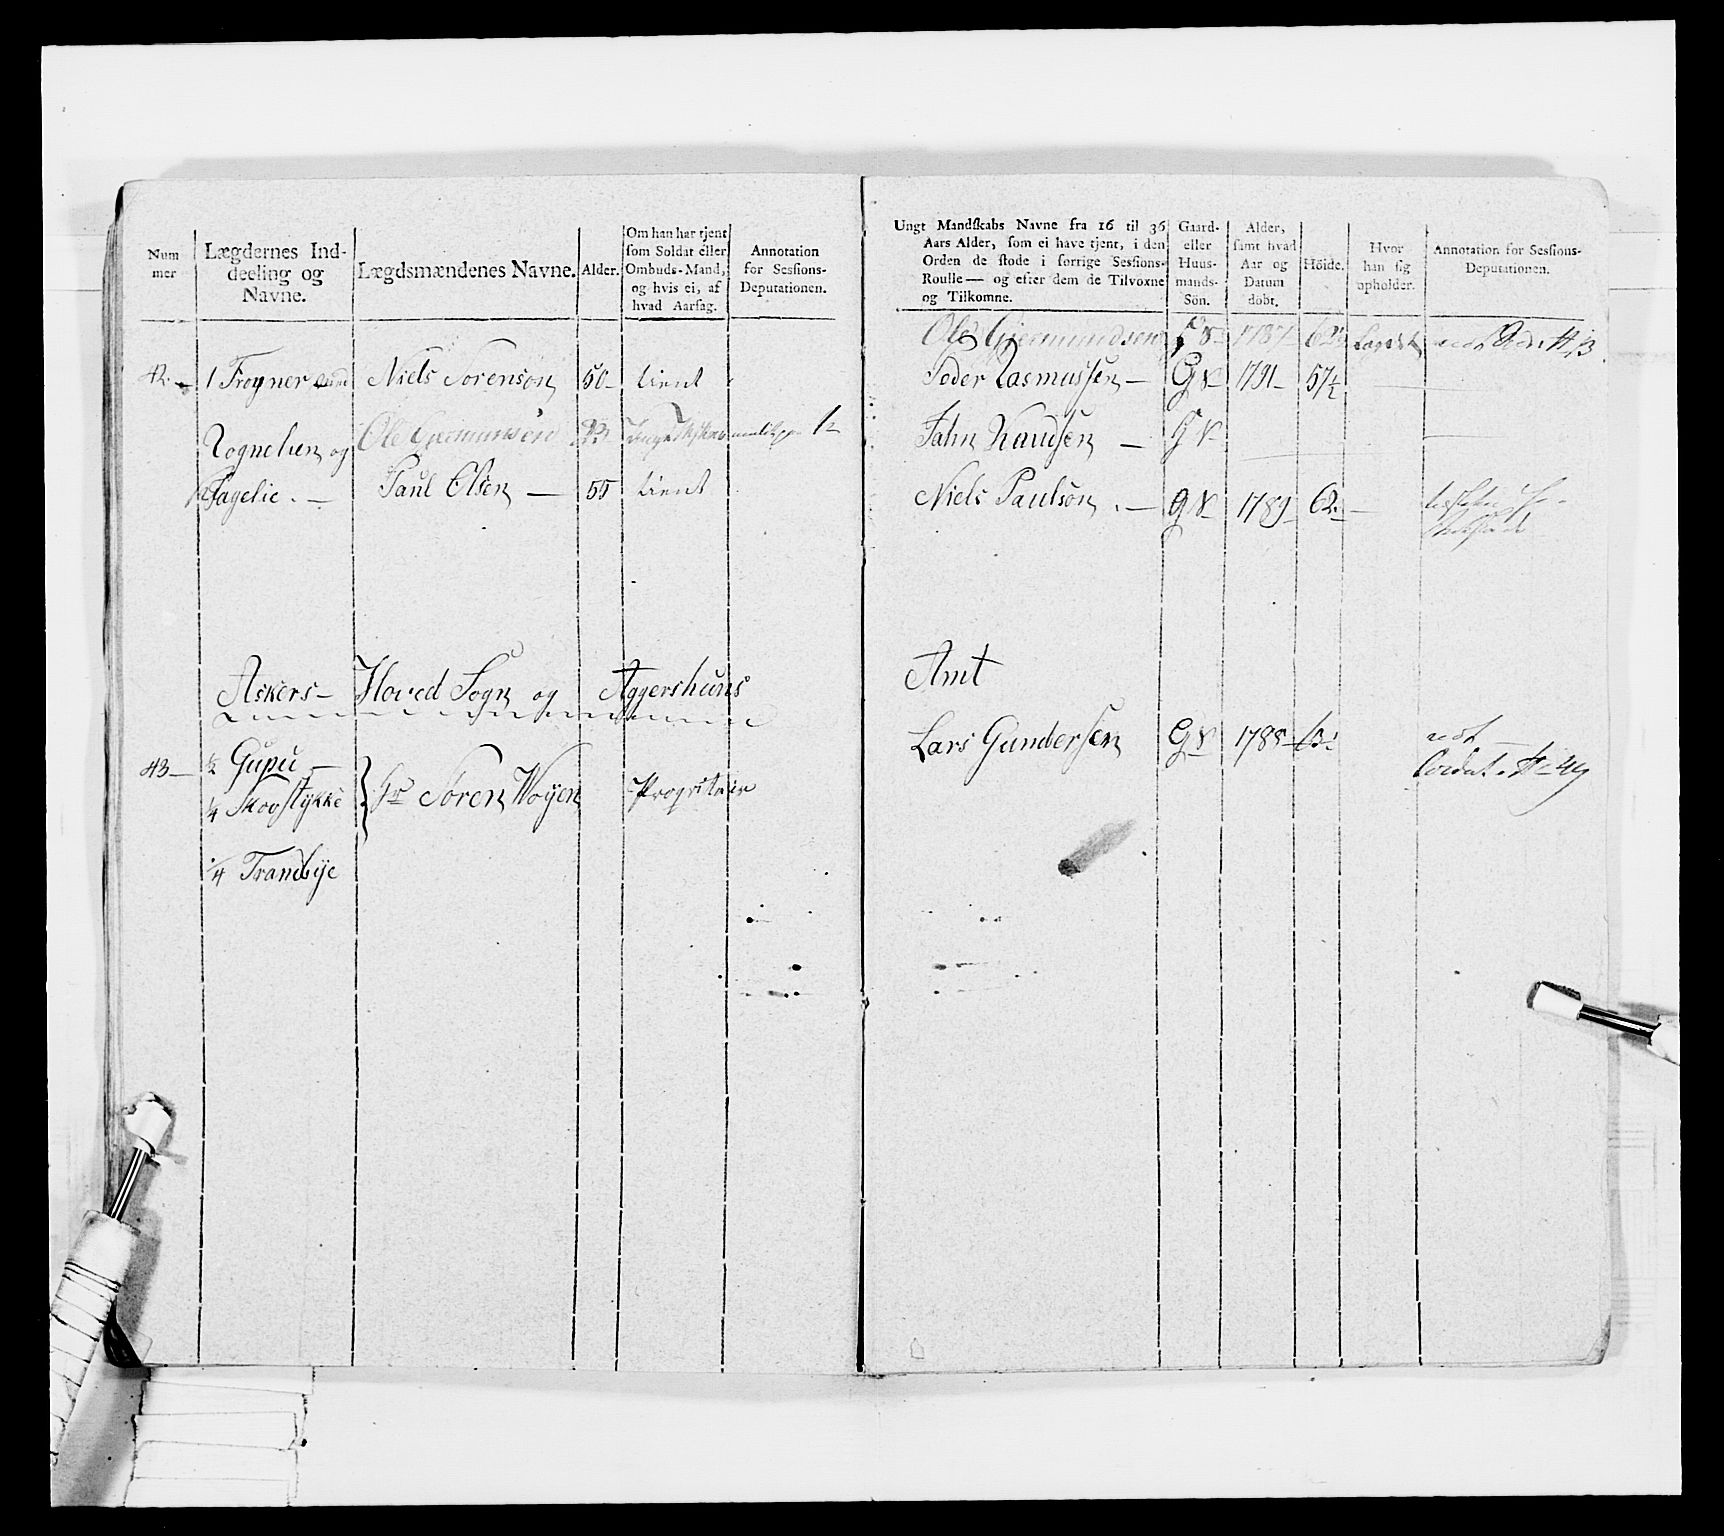 Num
mer
Lægdernes Ind-
deeling og
Navne.
Lægdsmændenes Navne.
Alder.
Om han har tjent
som Soldat eller
Ombuds-Mand,
og hvis ei, af
hvad Aarsag.
Annotation
for Sessions-
Deputationen.
42 1 Frogner Niels Sörensön 50 tient
Rognelien og Ole
Fagelie Paul Olsen 55 tient
Askers- Hoved Sogn og Aggershuus
43 ½ Gupu
¼ Skovstykke Hr Sören Woyen Propritair
¼ Trandbye
Ungt Mandskabs Navne fra 16 til 36
Aars Alder, som ei have tjent, i den
Orden de stode i forrige Sessions-
Roulle — og efter dem de Tilvoxne
og Tilkomne.
Gaard-
eller
Huus-
mands-
Sön.
Alder,
samt hvad
Aar og
Datum
döbt.
Höide.
Hvor
han sig
opholder.
Annotation for Sessions-
Deputationen.
Ole Giermundsen
Peder Rasmussen G S 1791 57½
Jahn Knudsen G S
Niels Paulsön G S 1789 62
Amt
Lars Gundersen G S 1788